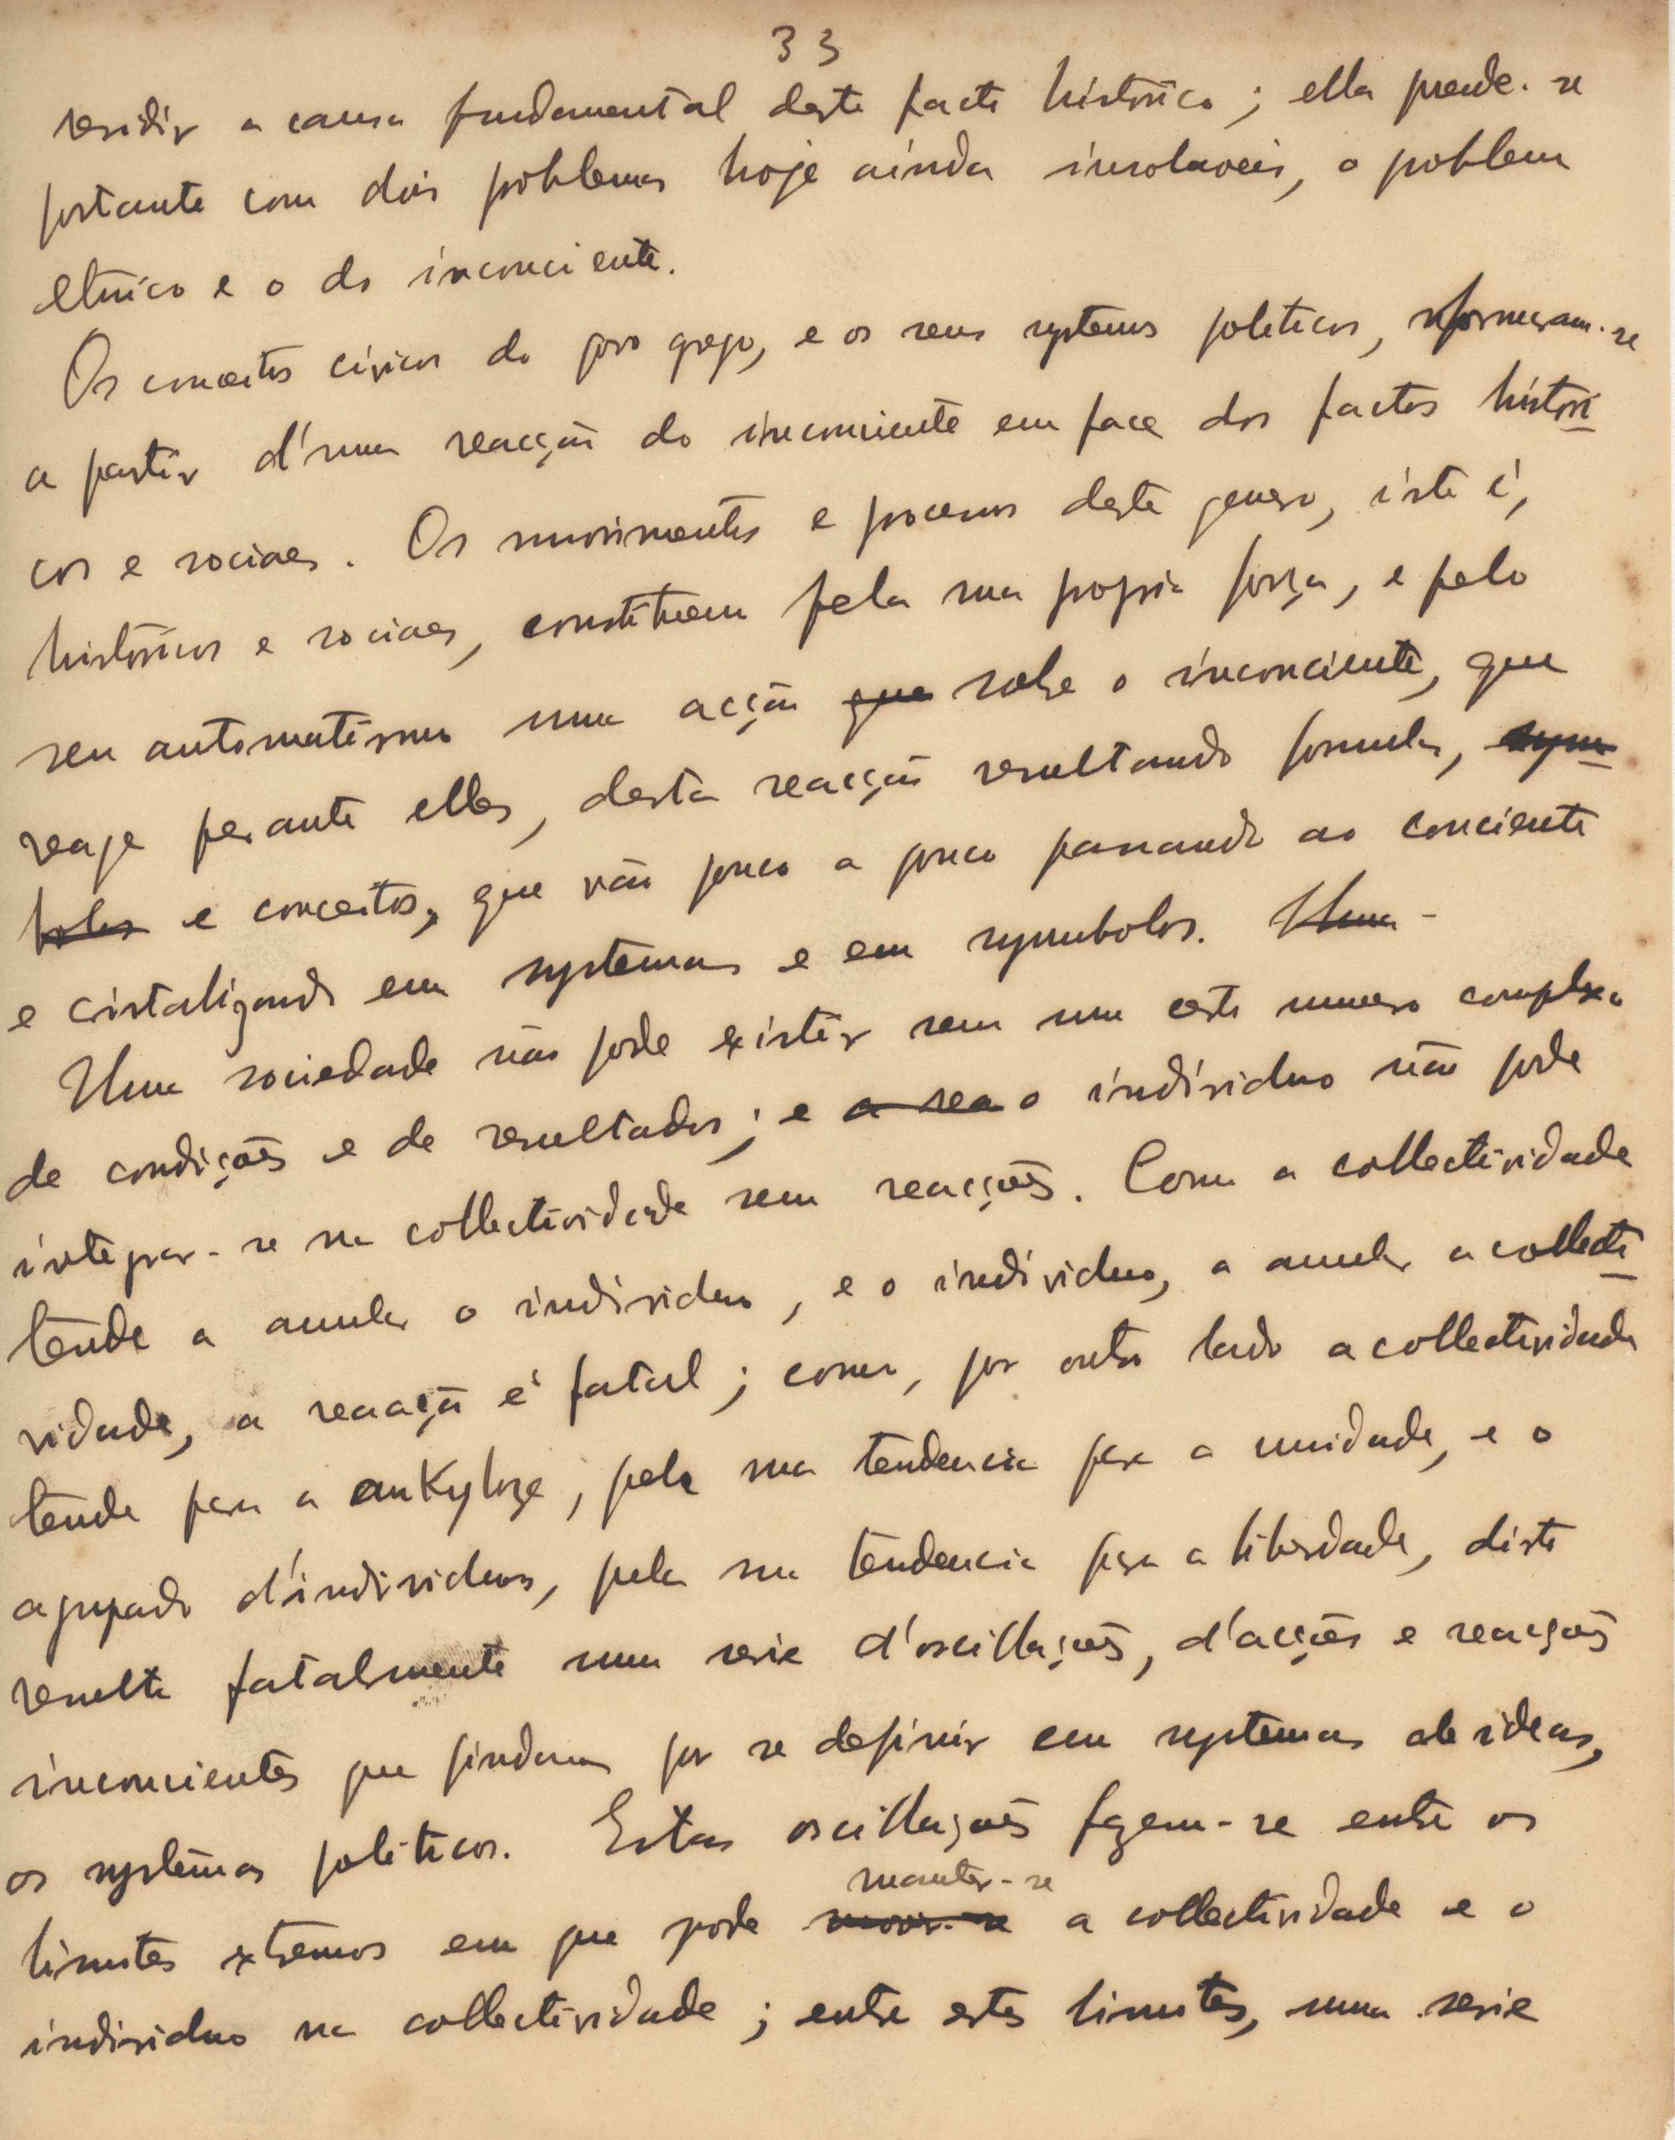 33
residir a causa fundamental deste facto histórico; ella prende-se
portanto com dois problemas hoje ainda insoluveis, o problema
etnico e o do inconciente.
Os conceitos civicos do povo grego, e os seus systemas politicos, formaram-se
a partir d'uma reacção do inconciente em face dos factos histori
cos e sociaes. Os movimentos e processos deste genero, isto é,
históricos e sociaes, constituem pela sua propria força, e pelo
seu automatismo uma acção que sobre o inconciente, que
reage perante elles, desta reacção resultando formulas, sym-
bolos e conceitos, que vão pouco a pouco passando ao conciente
e cristalizando em systemas e em symbolos. Uma -
Uma sociedade não pode existir sem um certo numero complexo
de condições e de resultados; e a rea o individuo não pode
integrar-se na collectividade sem reacções. Como a collectividade
tende a anular o individuo, e o individuo, a anular a collecti
vidade, a reacção é fatal; como, por outro lado a collectividade
tende para a ankyloze, pela sua tendencia para a unidade, e o
agrupado d'individuos, pela sua tendencia para a liberdade, disto
resulta fatalmente uma serie d'oscillações, d'acções e reacções
inconcientes que findam por se definir em systemas de ideas,
os systemas politicos. Estas oscillações fazem-se entre os
manter-se
limites extremos em que pode mover-se a collectividade e o
individuo na collectividade; entre estes limites, uma serie